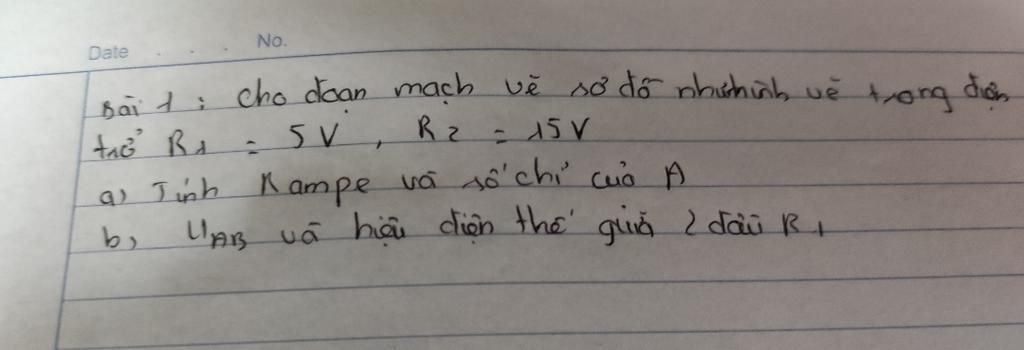 Date . . . . No.
Bài 1 : cho đoạn mạch vẽ sơ đồ như hình vẽ trong điện
trở R1 = 5 V , R2 = 15 V
a) Tính Rampe và số chỉ của A
b, UAB và hiệu điện thế giữa 2 đầu R1